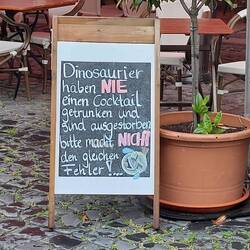 Dinosaurier
haben NIE
einen Cocktail
getrunken und
sind ausgestorben
bitte macht NICHT
den gleichen
Fehler!....